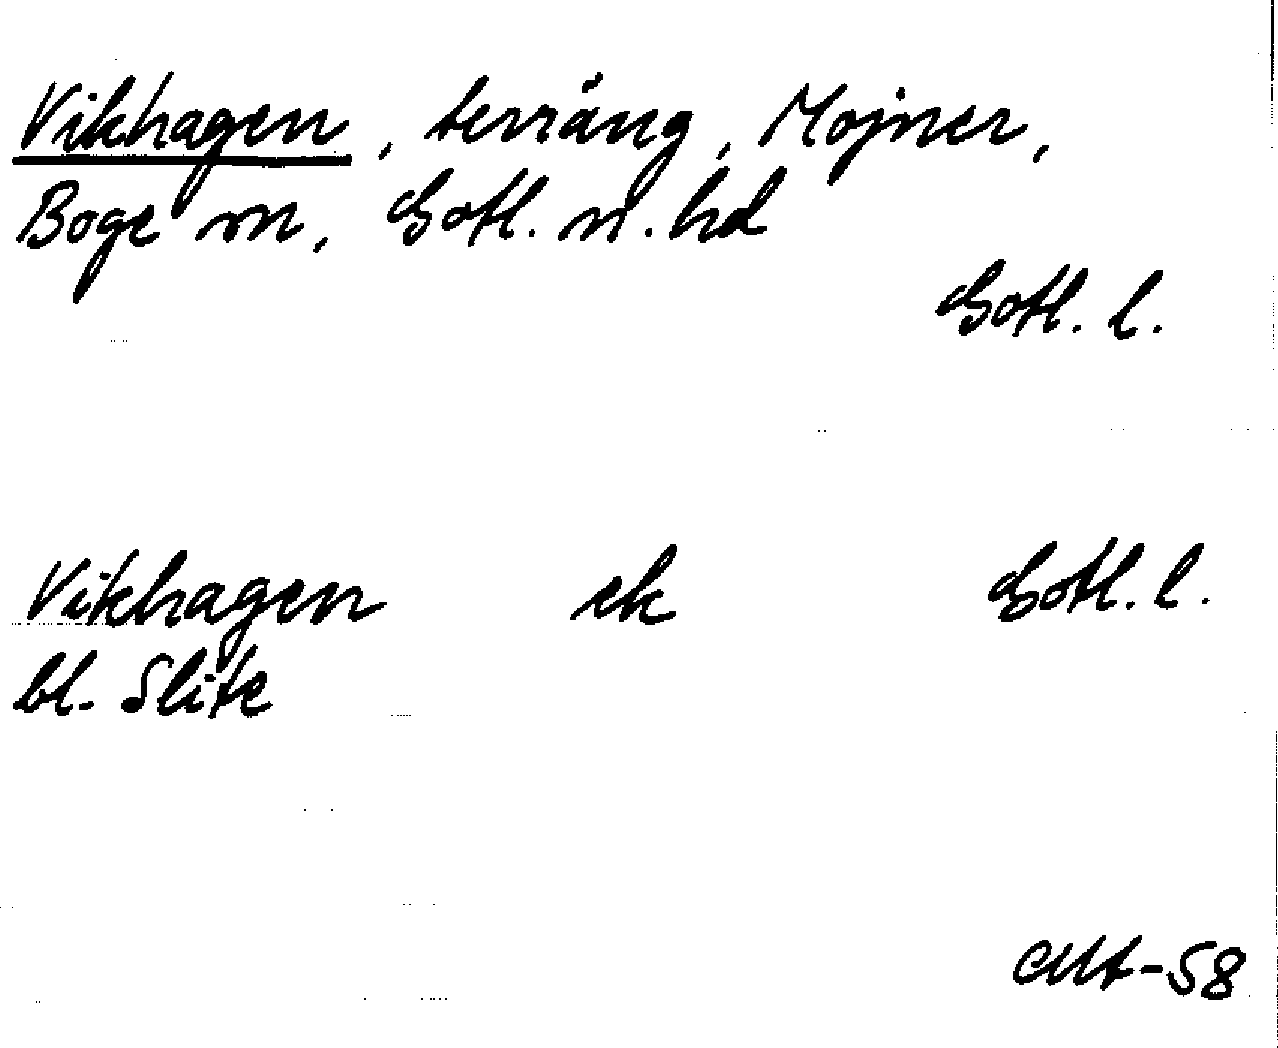 Vikhagen, terräng, Mojner,
Boge sn, Gotl. n. hd
Gotl. l.
Vikhagen ek Gotl. l.
bl. Slite